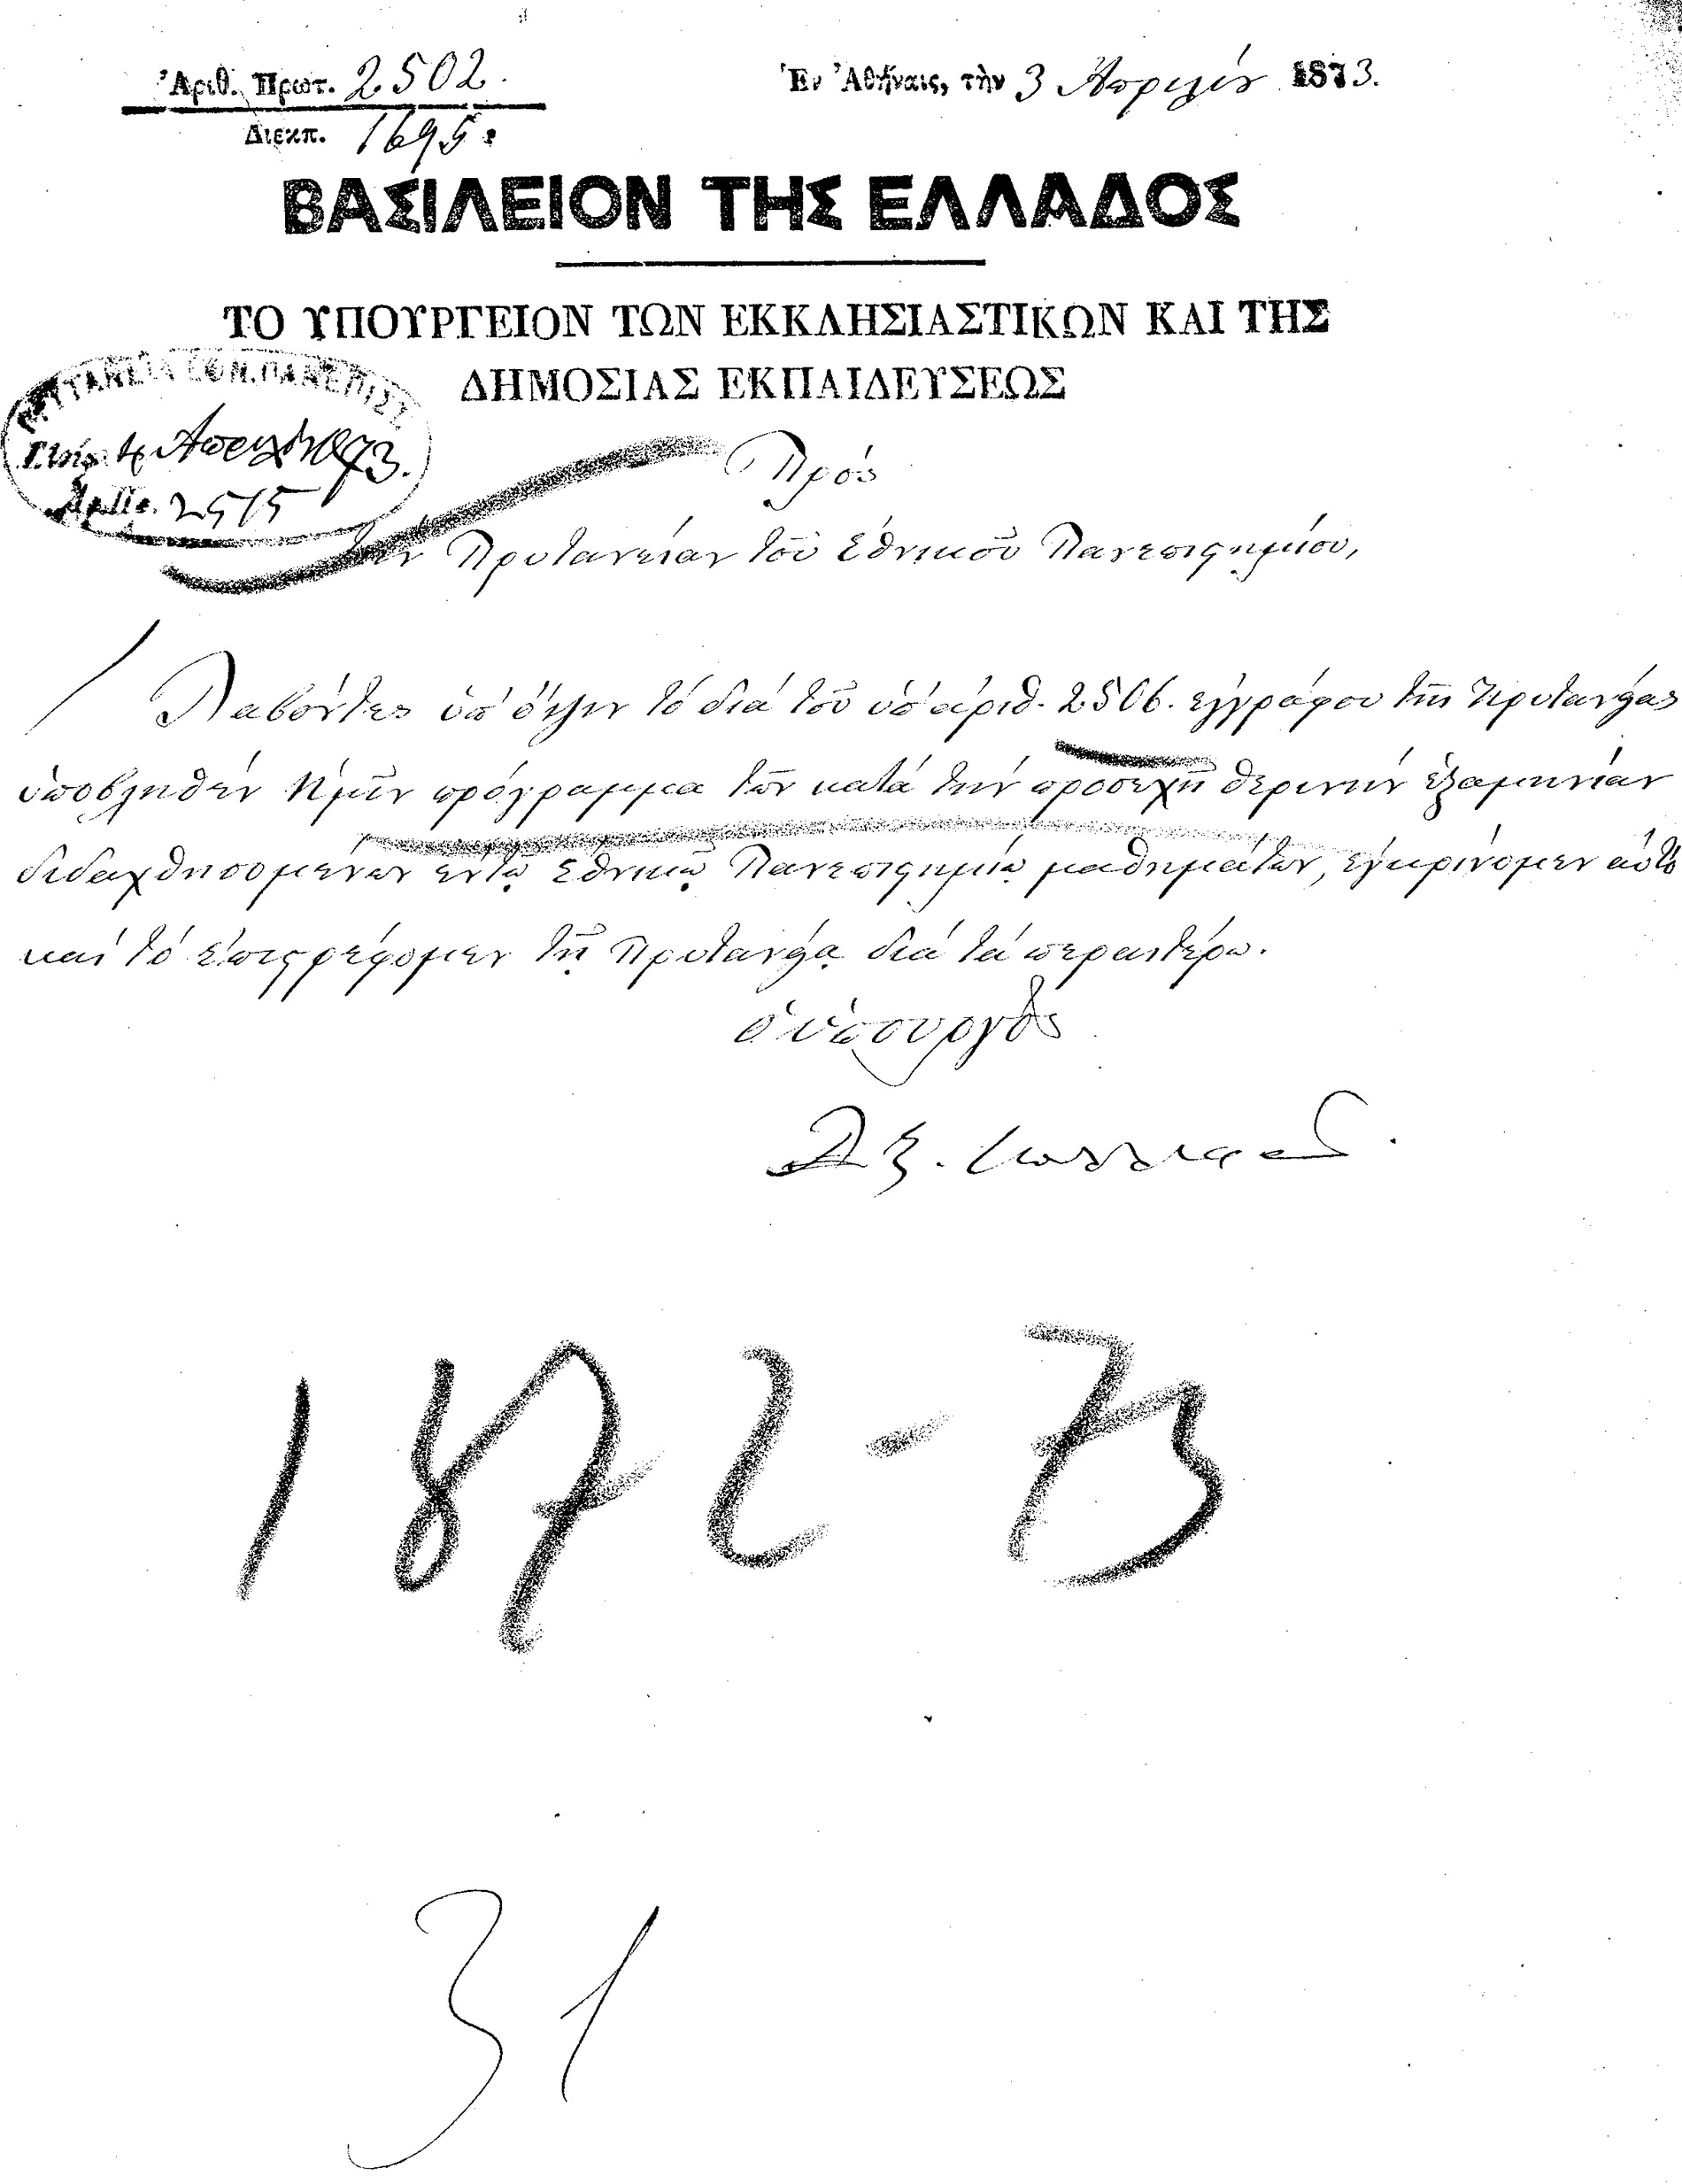 Ἀριθ. Πρωτ. 2502.
Διεκπ. 1695.
Ἐν Ἀθήναις, τὴν 3 Ἀπριλίου 1873.
ΒΑΣΙΛΕΙΟΝ ΤΗΣ ΕΛΛΑΔΟΣ
ΤΟ ΥΠΟΥΡΓΕΙΟΝ ΤΩΝ ΕΚΚΛΗΣΙΑΣΤΙΚΩΝ ΚΑΙ ΤΗΣ
ΔΗΜΟΣΙΑΣ ΕΚΠΑΙΔΕΥΣΕΩΣ
ΠΡΥΤΑΝΕΙΑ ΕΘΝ. ΠΑΝΕΠΙΣΤ.
4 Ἀπριλίου 1873.
2515
Πρὸς
τὴν Πρυτανείαν τοῦ Ἐθνικοῦ Πανεπιστημίου,
Λαβόντες ὑπ' ὄψιν τὸ διὰ τοῦ ὑπ' ἀριθ. 2506. ἐγγράφου τῆς Πρυτανείας
ὑποβληθὲν ἡμῖν πρόγραμμα τῶν κατὰ τὴν προσεχῆ θερινὴν ἑξαμηνίαν
διδαχθησομένων ἐν τῷ Ἐθνικῷ Πανεπιστημίῳ μαθημάτων, ἐγκρίνομεν αὐτὸ
καὶ τὸ ἐπιστρέφομεν τῇ Πρυτανείᾳ διὰ τὰ περαιτέρω.
ὁ ὑπουργὸς
1872-73
31